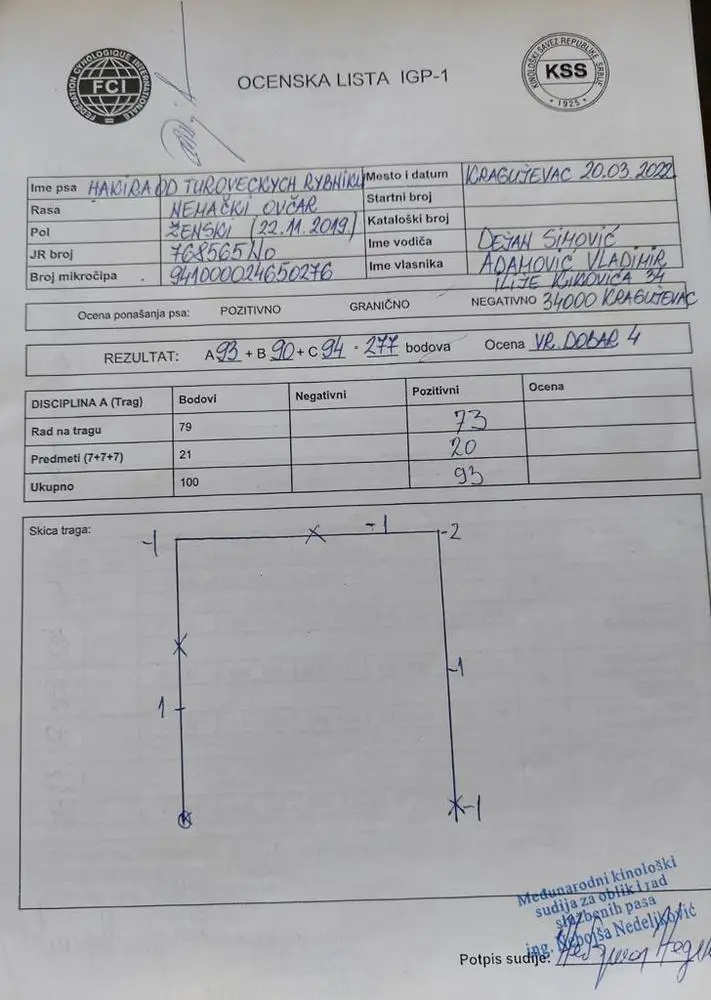 FEDERATION CYNOLOGIQUE INTERNATIONALE
FCI
OCENSKA LISTA IGP-1
KINOLOŠKI SAVEZ REPUBLIKE SRBIJE
KSS
1925
Ime psa HAKIRA OD TUROVECKYCH RYBNIKU Mesto i datum KRAGUJEVAC 20.03.2022
Rasa NEMAČKI OVČAR Startni broj
Pol ŽENSKI (22.11.2019) Kataloški broj
JR broj 768565 No Ime vodiča DEJAN SIMOVIĆ
Broj mikročipa 941000024650276 Ime vlasnika ADAMOVIĆ VLADIMIR
ILIJE 34
Ocena ponašanja psa: POZITIVNO GRANIČNO NEGATIVNO 34000 KRAGUJEVAC
REZULTAT: A 93 + B 90 + C 94 = 277 bodova Ocena VR. DOBAR 4
DISCIPLINA A (Trag) Bodovi Negativni Pozitivni Ocena
Rad na tragu 79 73
Predmeti (7+7+7) 21 20
Ukupno 100 93
Skica traga:
-1 -1 -2
-1
1
-1
Međunarodni kinološki
sudija za oblik i rad
službenih pasa
ing. Nebojša Nedeljković
Potpis sudije: